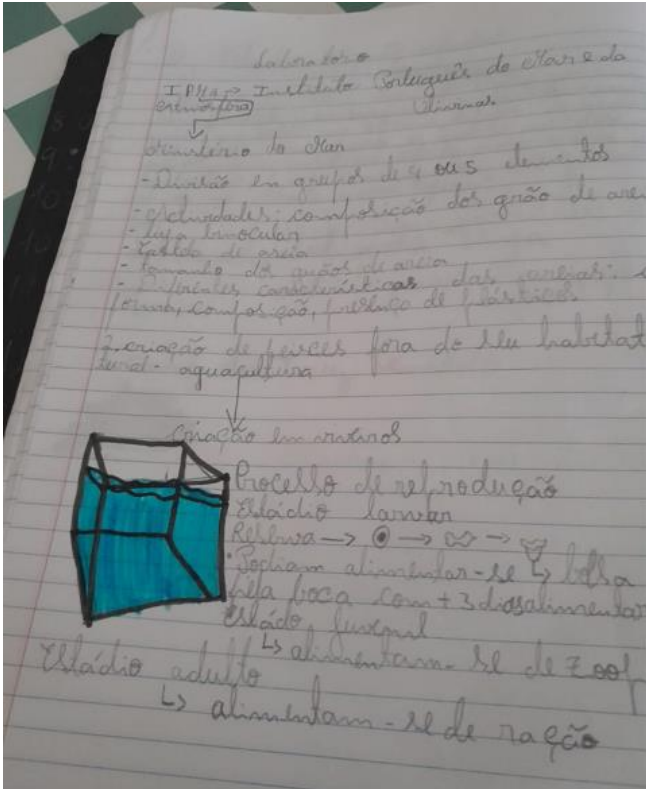 Laboratório
IPMA → Instituto Português do Mar e da
Atmosfera
Ministério do Mar
- Divisão em grupos de 4 ou 5 elementos
- Actividades: composição dos grão de are
- lupa binocular
- de areia
- tamanho dos grãos de areia
- Diferentes características das areias:
forma, composição, presença de plásticos
2. criação de peixes fora do seu habitat
tural - aquacultura
Criação em
Processo de reprodução
Estádio larvar
Reserva → → →
• Podiam alimentar-se ↳ bolsa
pela boca com + 3 dias alimentar
Estádo juvenil
↳ alimentam-se de Zoop
Estádio adulto
↳ alimentam-se de ração